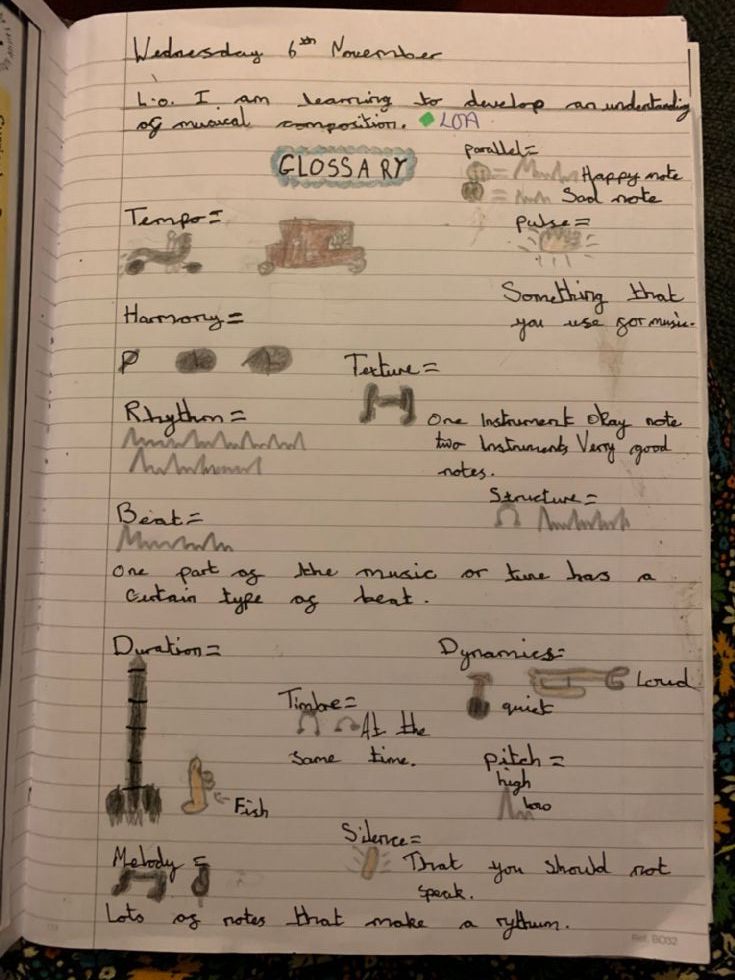 Wednesday 6th November
L.o. I am learning to develop an understanding
of musical composition. LOA
GLOSSARY
parallel=
= Happy note
= Sad note
Tempo=
pulse=
Something that
you use for music.
Harmony=
Texture=
One Instrument Okay note
two Instruments Very good
notes.
Rhythm=
Structure=
Beat=
One part of the music or tune has a
Certain type of beat.
Duration=
Dynamics=
Loud
quiet
Timbre=
At the
same time.
pitch=
high
low
Fish
Silence=
That you should not
speak.
Melody=
Lots of notes that make a rythum.
Ref. BO32